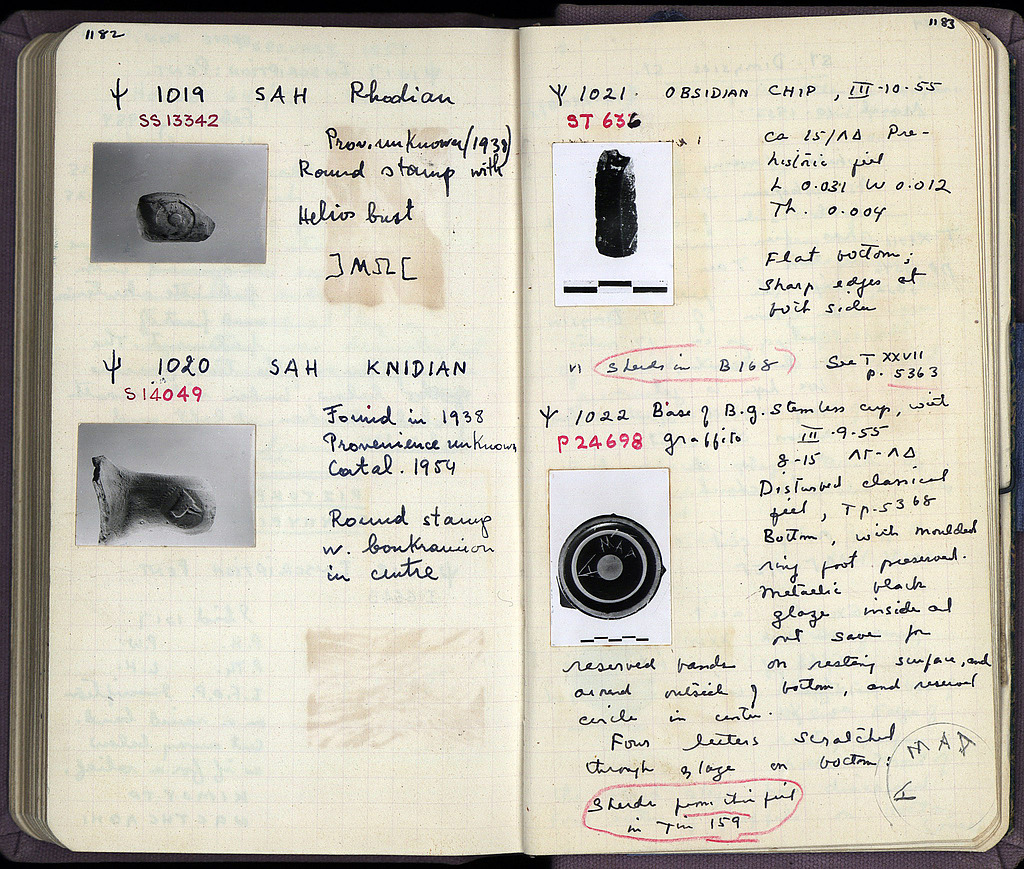 1182
Ψ 1019 SAH Rhodian
SS 13342
Prov. unknown (1938)
Round stamp with
Helios bust
]ΜΩ[
Ψ 1020 SAH KNIDIAN
S 14049
Found in 1938
Provenience unknown
Catal. 1954
Round stamp
w. boukranion
in centre
1183
Ψ 1021. OBSIDIAN CHIP, III-10-55
ST 636
ca 15/ΛΔ Pre-
historic fill
L 0.031 W 0.012
Th. 0.004
Flat bottom;
sharp edges at
both sides
Sherds in B 168
See T XXVII
p. 5363
Ψ 1022 Base of B.g. stemless cup, with
P 24698 graffito III-9-55
8-15 ΛΓ-ΛΔ
Disturbed classical
fill, T p. 5368
Bottom, with moulded
ring foot preserved.
Metallic black
glaze inside and
out save for
reserved bands on resting surface, and
around outside of bottom, and reserved
circle in center.
Four letters scratched
through glaze on bottom:
Sherds from this fill
in Tin 159